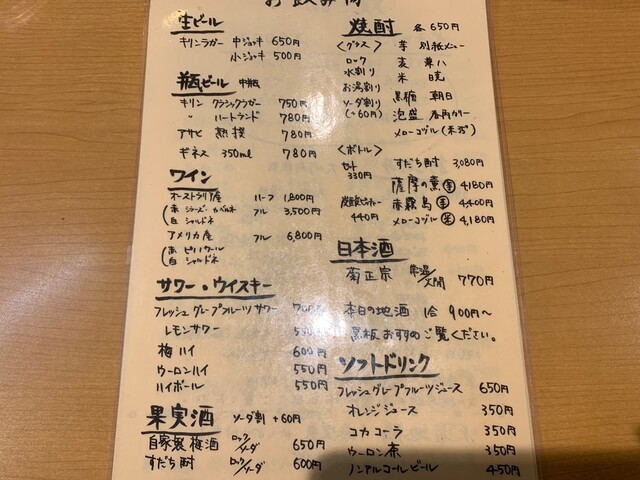 お飲み物
生ビール
キリンラガー 中ジョッキ 650円
小ジョッキ 500円
瓶ビール 中瓶
キリン クラシックラガー 750円
〃 ハートランド 780円
アサヒ 熟撰 780円
ギネス 350ml 780円
ワイン
オーストラリア産 ハーフ 1,800円
(赤 シラーズ・カベルネ フル 3,500円
白 シャルドネ
アメリカ産 フル 6,800円
(赤 ピノノワール
白 シャルドネ
サワー・ウイスキー
フレッシュグレープフルーツサワー 700円
レモンサワー
梅ハイ 600円
ウーロンハイ 550円
ハイボール 550円
果実酒 ソーダ割 +60円
自家製梅酒 ロック/ソーダ 650円
すだち酎 ロック/ソーダ 600円
焼酎 各650円
〈グラス〉 芋 別紙メニュー
ロック 麦 兼八
水割り 米 暁
お湯割り 黒糖 朝日
ソーダ割り 泡盛
(+60円) メローコヅル(米35°)
〈ボトル〉
セット 330円
すだち酎 3,080円
薩摩の薫 芋 4,180円
炭酸 440円
赤霧島 芋 4,400円
メローコヅル 米 4,180円
日本酒
菊正宗 常温/大関 770円
本日の地酒 1合 900円〜
黒板おすすめご覧ください。
ソフトドリンク
フレッシュグレープフルーツジュース 650円
オレンジジュース 350円
コカコーラ 350円
ウーロン茶 350円
ノンアルコールビール 450円